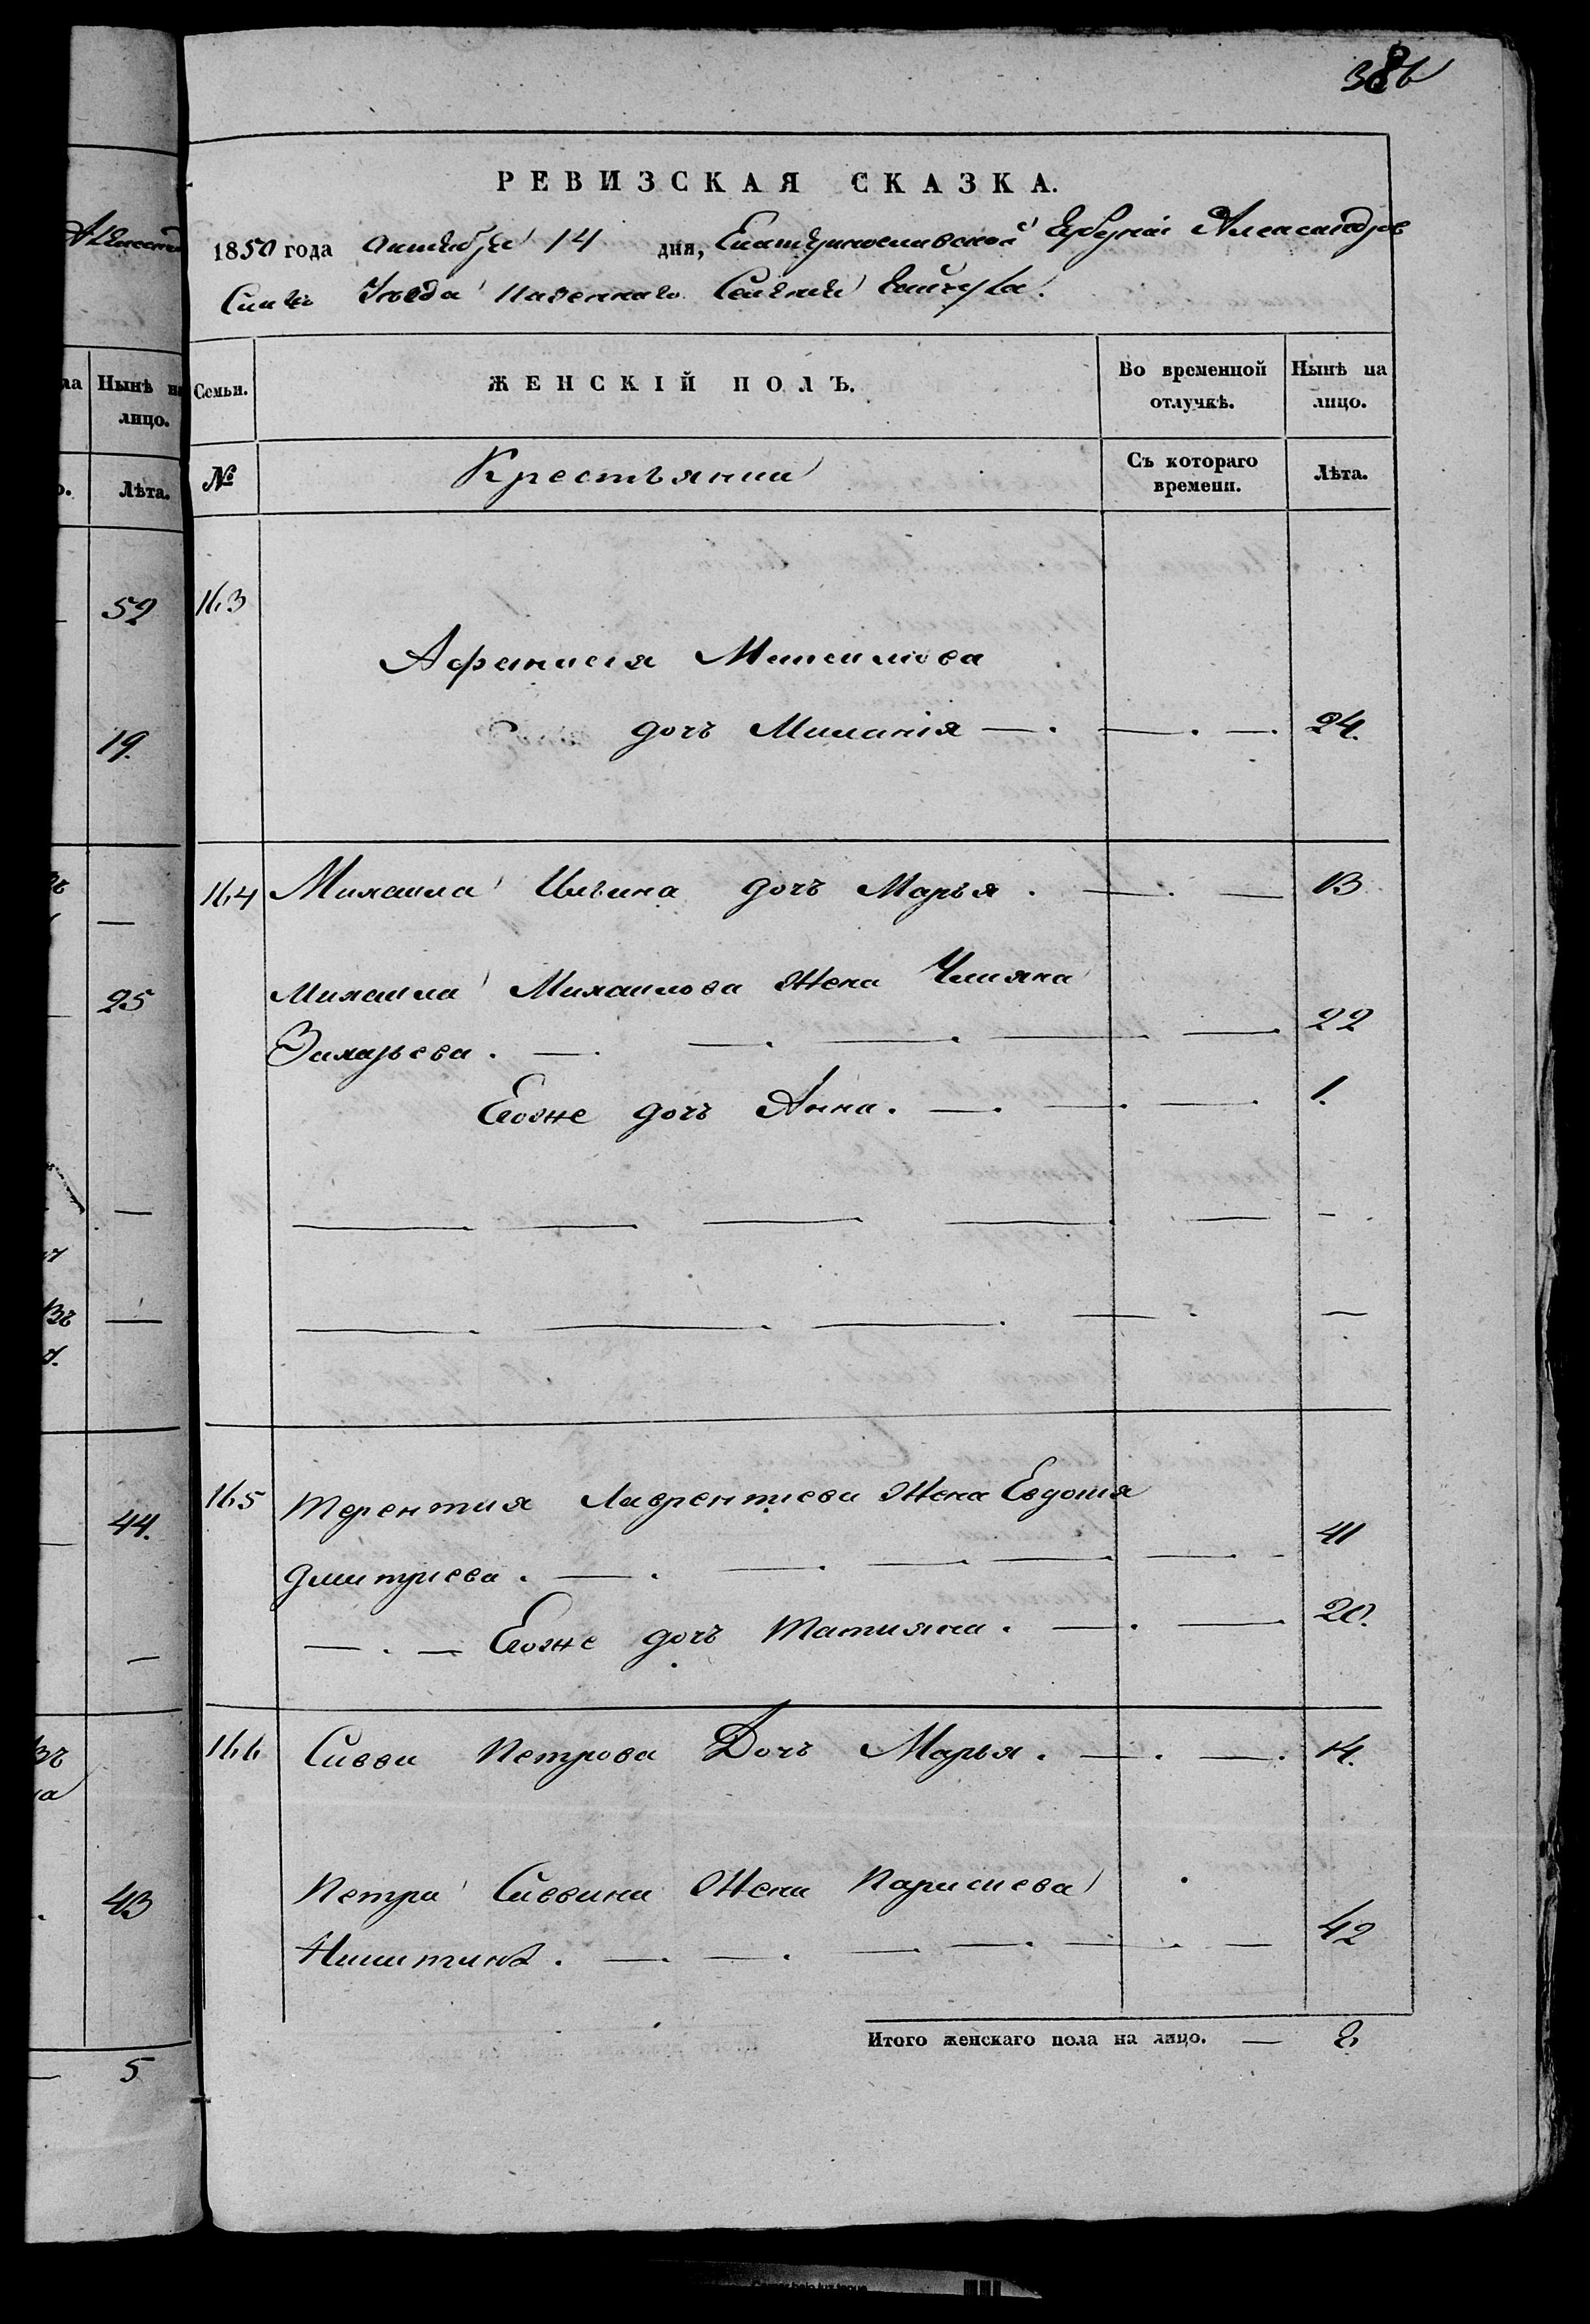 386
РЕВИЗСКАЯ СКАЗКА.
1850 года октября 14 дня, Екатеринославской Губерніи Александров
Скаго Уезда Казеннаго Селенія Гайчула.
Нынѣ на лицо.
Лѣта.
52
19.
—
25
—
—
44.
—
43
5
Семьи. ЖЕНСКІЙ ПОЛЪ. Во временной отлучкѣ. Нынѣ на лицо.
№ Крестьянии Съ котораго времени. Лѣта.
163
Афанасия Максимова
дочъ Миланія — . — . — . 24.
164 Михаила Ильина дочъ Марья . — . — 13
Михаила Михаилова жена Улияна
Захарьева . — . — . — . — — . 22
Егоже дочъ Анна . — . — . — . 1.
165 Терентия Лаврентиева жена Евдокия
Дмитриева . — . — . — . — . — . - 41
— . — Егоже дочъ Татияна . — . — . 20.
166 Савви Петрова Дочъ Марья . — . — . 14.
Петра Саввина жена Параскева
Никитина . — . — . — — . — . — 42
Итого женскаго пола на лицо. — 8.